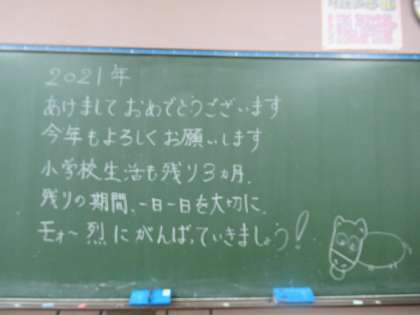 2021年
あけましておめでとうございます
今年もよろしくお願いします
小学校生活も残り3ヵ月、
残りの期間、一日一日を大切に、
モォ〜烈にがんばっていきましょう!